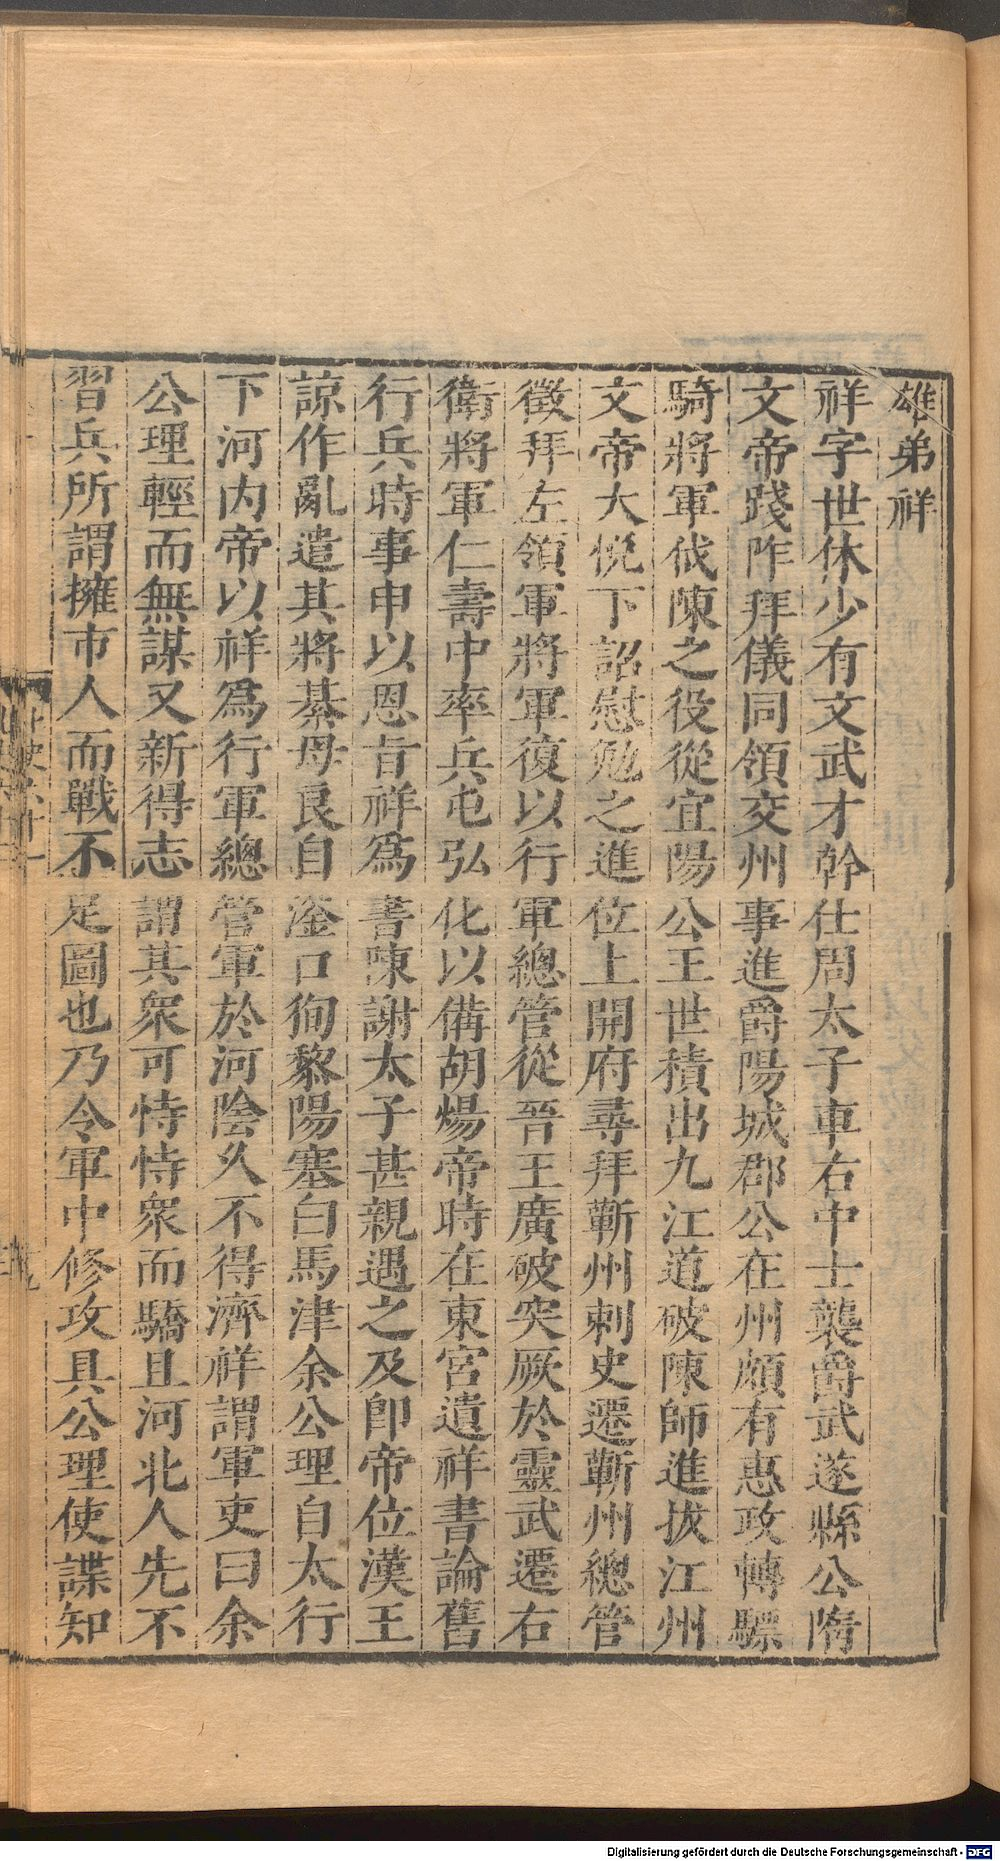 雄弟祥
祥字世休少有文武才幹仕周太子車右中士襲爵武遂縣公隋
文帝踐阼拜儀同領交州事進爵陽城郡公在州頗有惠政轉驃
騎將軍伐陳之役從宜陽公王世積出九江道破陳師進拔江州
文帝大悅下詔慰勉之進位上開府尋拜蘄州刺史遷蘄州總管
徵拜左領軍將軍復以行軍總管從晉王廣破突厥於靈武遷右
衛將軍仁壽中率兵屯弘化以備胡煬帝時在東宮遺祥書論舊
行兵時事申以恩旨祥為書陳謝太子甚親遇之及卽帝位漢王
諒作亂遣其將綦母良自滏口徇黎陽塞白馬津余公理自太行
下河內帝以祥爲行軍總管軍於河陰久不得濟祥謂軍吏曰余
公理輕而無謀又新得志謂其衆可恃恃衆而驕且河北人先不
習兵所謂擁市人而戰不足圖也乃令軍中修攻具公理使諜知
Digitalisierung gefördert durch die Deutsche Forschungsgemeinschaft - DFG